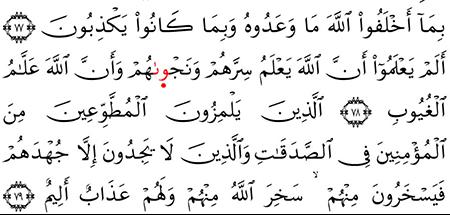 بِمَآ أَخْلَفُوا۟ ٱللَّهَ مَا وَعَدُوهُ وَبِمَا كَانُوا۟ يَكْذِبُونَ ٧٧
أَلَمْ يَعْلَمُوٓا۟ أَنَّ ٱللَّهَ يَعْلَمُ سِرَّهُمْ وَنَجْوَىٰهُمْ وَأَنَّ ٱللَّهَ عَلَّٰمُ
ٱلْغُيُوبِ ٧٨ ٱلَّذِينَ يَلْمِزُونَ ٱلْمُطَّوِّعِينَ مِنَ
ٱلْمُؤْمِنِينَ فِى ٱلصَّدَقَٰتِ وَٱلَّذِينَ لَا يَجِدُونَ إِلَّا جُهْدَهُمْ
فَيَسْخَرُونَ مِنْهُمْ ۙ سَخِرَ ٱللَّهُ مِنْهُمْ وَلَهُمْ عَذَابٌ أَلِيمٌ ٧٩